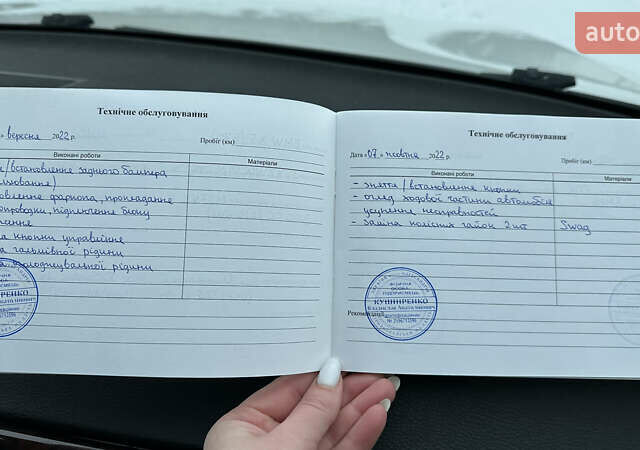 auto
Технічне обслуговування
вересня 2022 р.
Пробіг (км)
Виконані роботи
Матеріали
/встановлення заднього бампера
влення фаркопа, прокладання
проводки, підключення блоку
кнопки управління
гальмівної рідини
охолоджувальної рідини
Технічне обслуговування
Дата «07» жовтня 2022 р.
Пробіг (км)
Виконані роботи
Матеріали
- зняття/встановлення кнопки
- огляд ходової частини автомобіля
усунення несправностей
- заміна колісних гайок 2 шт
Swag
Рекомендації
ФІЗИЧНА
ОСОБА
ПІДПРИЄМЕЦЬ
КУШНІРЕНКО
Владислав Анатолійович